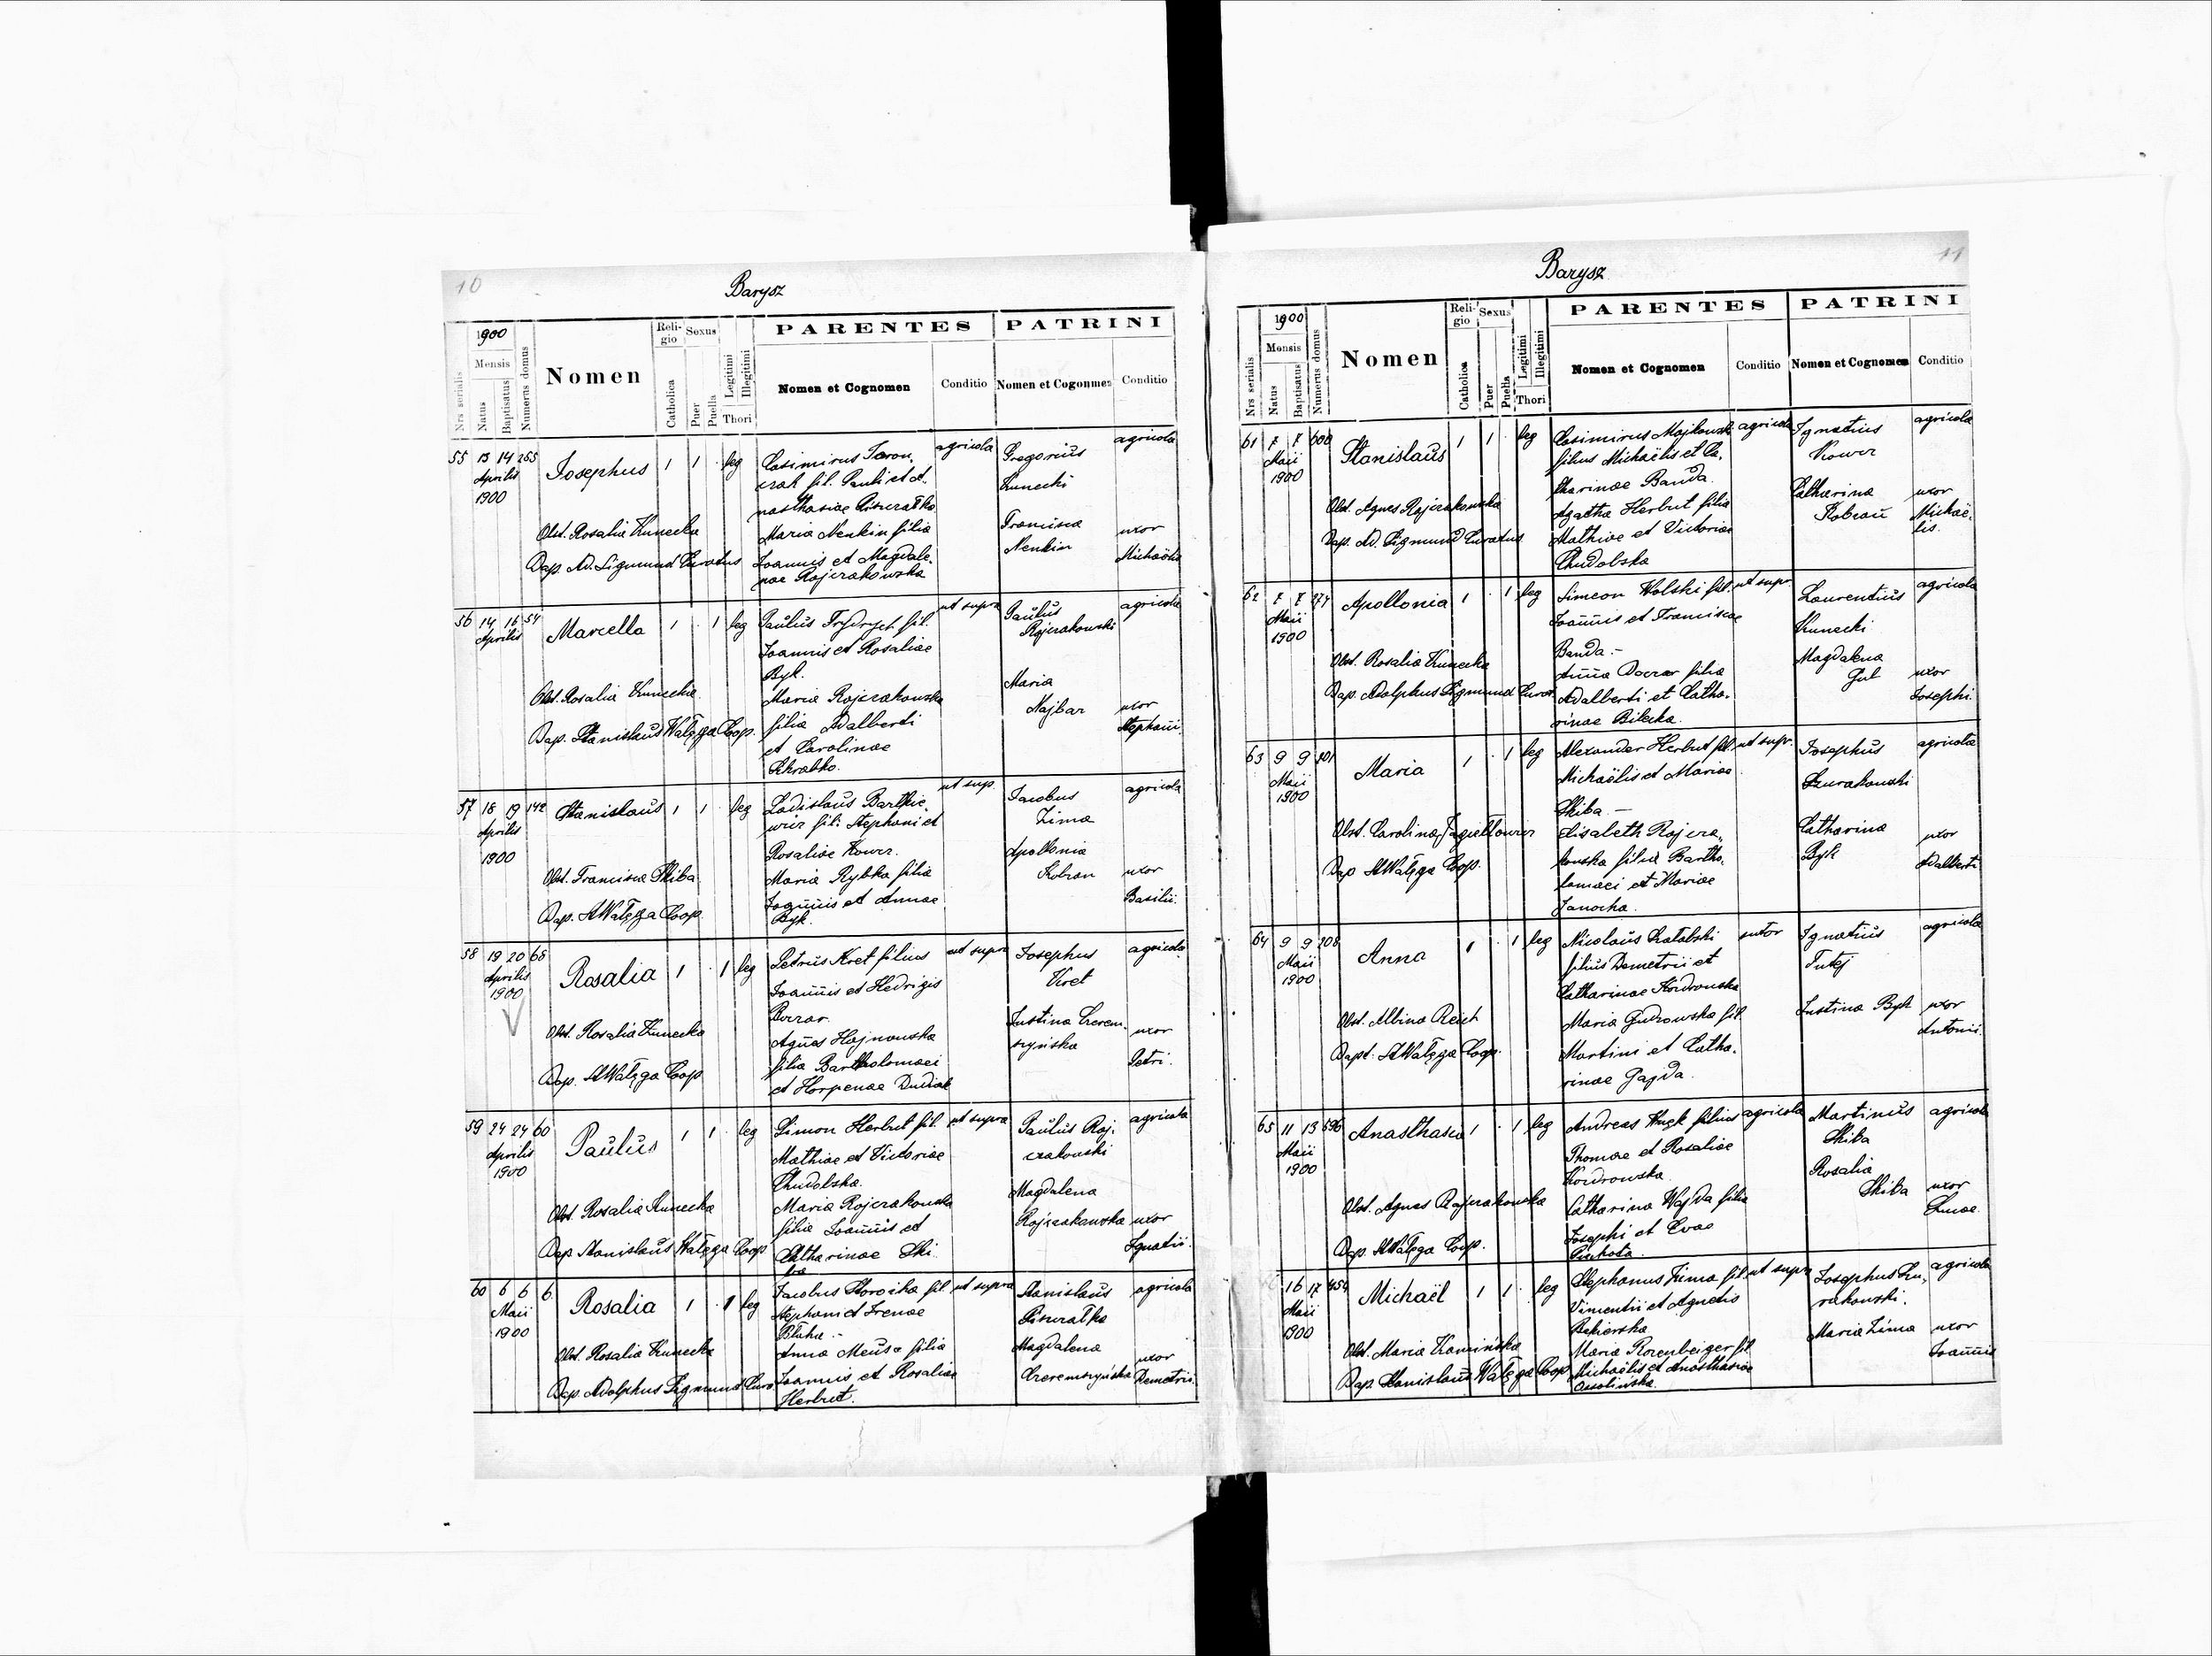 10
Barysz
1900
Mensis
Nrs serialis
Natus
Baptisatus
Numerus domus
Nomen
Religio
Sexus
Catholica
Puer
Puella
Legitimi
Illegitimi
Thori
PARENTES
PATRINI
Nomen et Cognomen
Conditio
Nomen et Cogonmen
Conditio
55 13 14 255
Aprilis
1900
Josephus 1 1 . leg
Obst. Rosalia Kunecka
Bap. Ad. Zigmund Curatus
Casimirus
fil. Pauli et A-
nasthasiae
Maria Nenkin filia
Joannis et Magdale-
nae Rojczakowska
agricola
Gregorius
Kunecki
Francisca
Nenkin
agricola
uxor
Michaëlis
56 14 16 54
Aprilis
Marcella 1 . 1 leg
Obst. Rosalia Kunecka
Bap. Stanislaus Walęga Coop.
Paulus Frydrych fil.
Joannis et Rosaliae
Byk.
Maria Rojczakowska
filia Adalberti
et Carolinae
ut supra
Paulus
Rojczakowski
Maria
Najbar
agricola
uxor
Stephani.
57 18 19 142
Aprilis
1900
Stanislaus 1 1 . leg
Obst. Francisca Skiba
Bap. StWalęga Coop.
Ladislaus Bartkie-
wicz fil. Stephani et
Rosaliae Kowcz.
Maria Rybka filia
Joannis et Annae
Byk.
ut sup.
Jacobus
Zima
Apollonia
agricola
uxor
Basilii.
58 19 20 68
Aprilis
1900
Rosalia 1 . 1 leg
Obst. Rosalia Kunecka
Bap. StWalęga Coop
Petrus Kret filius
Joannis et Hedvigis
Agnes Hajnowska
filia Bartholomaei
et Horpenae Dudiak
ut supra
Josephus
Kret
Justina Czerem-
szyńska
agricola
uxor
Petri.
59 24 24 60
Aprilis
1900
Paulus 1 1 . leg
Obst. Rosalia Kunecka
Bap Stanislaus Walęga Coop
Simon Herbut fil.
Mathiae et Victoriae
Chudolska.
Maria Rojczakowska
filia Joannis et
Catharinae Ski
ba
ut supra
Paulus Roj-
czakowski
Magdalena
Rojczakowska
agricola
uxor
Ignatii.
60 6 6 6
Maii
1900
Rosalia 1 . 1 leg
Obst. Rosalia Kunecka
Bap. Adolphus Zigmund Cura
Jacobus fil.
Stephani et Irenae
Anna filia
Joannis et Rosaliae
Herbut.
ut supra
Stanislaus
Magdalena
Czeremszyńska
agricola
uxor
Demetrii.
11
Barysz
1900
Mensis
Nrs serialis
Natus
Baptisatus
Numerus domus
Nomen
Religio
Sexus
Catholica
Puer
Puella
Legitimi
Illegitimi
Thori
PARENTES
PATRINI
Nomen et Cognomen
Conditio
Nomen et Cognomen
Conditio
61 7 7 600
Maii
1900
Stanislaus 1 1 . leg
Obst. Agnes Rojczakowska
Bap. Ad. Zigmund Curatus
Casimirus Majkowski
filius Michaëlis et Ca-
tharinae Banda.
Agatha Herbut filia
Mathiae et Victoriae
Chudolska
agricola
Ignatius
Kowcz
Catharina
agricola
uxor
Michaë-
lis.
62 7 7
Maii
1900
Apollonia 1 . 1 leg
Obst. Rosalia Kunecka
Bap. Adolphus Zigmund Curat
Simeon Wolski fil.
Joannis et Franciscae
Banda -
Anna filia
Adalberti et Catha-
rinae Bilecka.
ut supr.
Laurentius
Kunecki
Magdalena
Gul
agricola
uxor
Josephi.
63 9 9
Maii
1900
Maria 1 . 1 leg
Obst. Carolina Jagiellowicz
Bap StWalęga Coop.
Alexander Herbut fil.
Michaëlis et Mariae
Skiba -
Elisabeth Rojcza-
kowska filia Bartho-
lomaei et Mariae
Janocha.
ut supr.
Josephus
Catharina
Byk
agricola
uxor
Adalberti
64 9 9 208
Maii
1900
Anna 1 . 1 leg
Obst. Albina Reich
Bapt. StWalęga Coop.
Nicolaus
filius Demetrii et
Catharinae
Maria fil.
Martini et Catha-
rinae Gajda.
sutor
Ignatius
Tutej
Justina Byk
agricola
uxor
Antonii.
65 11 13 596
Maii
1900
Anasthasia 1 . 1 leg
Obst. Agnes Rojczakowska
Bap. StWalęga Coop.
Andreas Huk filius
Thomae et Rosaliae
Catharina Wajda filia
Josephi et Evae
Puchota.
agricola
Martinus
Skiba
Rosalia
Skiba
agricola
uxor
Lucae.
16 17 454
Maii
1900
Michaël 1 1 . leg
Obst. Maria Kamińska
Bap. Stanislaus Walęga Coop
Stephanus Zima fil.
Vincentii et Agnetis
Bekierska
Maria Rozenbeiger fil.
Michaëlis et Anasthasiae
Ossolińska.
ut supra
Josephus
Maria Zima
agricola
uxor
Joannis